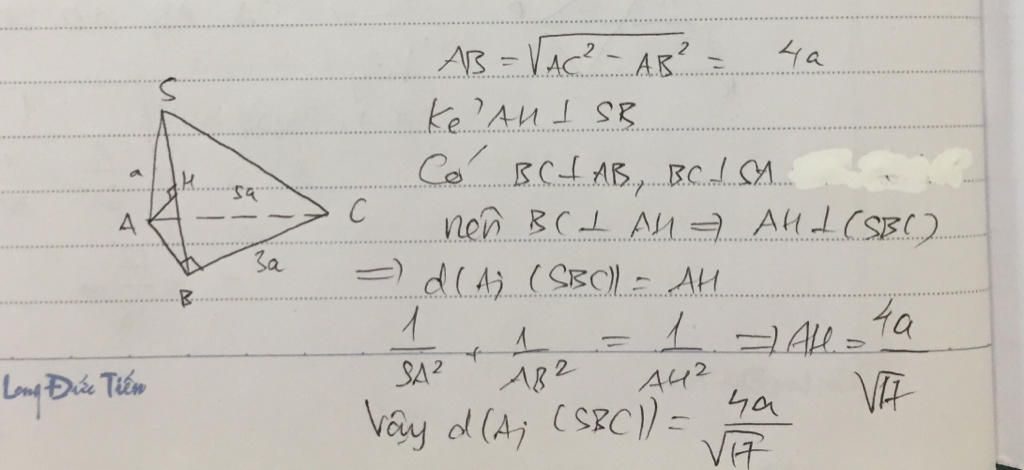 AB = √(AC² - AB²) = 4a
Kẻ AH ⊥ SB
Có BC ⊥ AB, BC ⊥ SA
nên BC ⊥ AH => AH ⊥ (SBC)
=> d(A; (SBC)) = AH
1/SA² + 1/AB² = 1/AH² => AH = 4a/√17
Vậy d(A; (SBC)) = 4a/√17
S
a
H
5a
A
C
3a
B
Long Đức Tiến